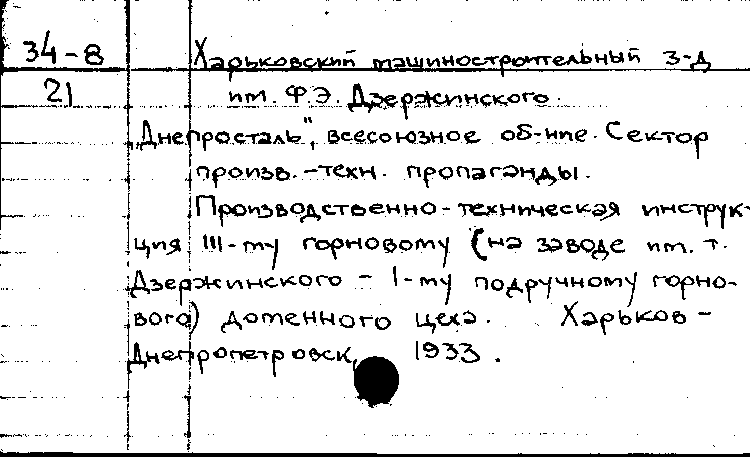 34-8 Харьковский машиностроительный з-д
21 им. Ф.Э. Дзержинского.
„Днепросталь", всесоюзное об-ние. Сектор
произв.-техн. пропаганды.
Производственно-техническая инструк-
ция III-му горновому (на заводе им. т.
Дзержинского - I-му подручному горно-
вого) доменного цеха. Харьков -
Днепропетровск, 1933.